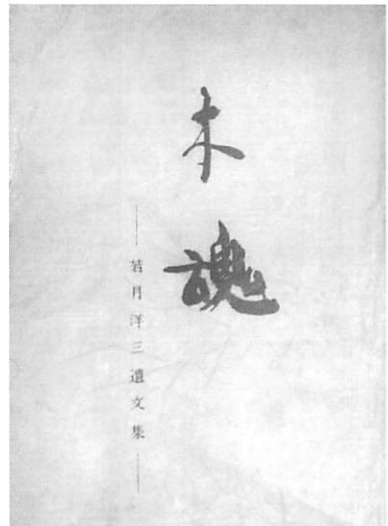 木魂
―若月洋三遺文集―